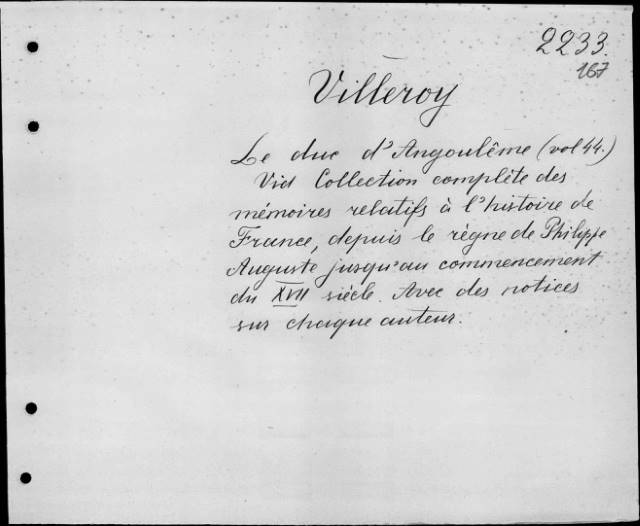 2233.
167
Villeroy
Le duc d'Angoulême (vol 44.)
Vid Collection complète des
mémoires relatifs à l'histoire de
France, depuis le règne de Philippe
Auguste jusqu'au commencement
du XVII siècle. Avec des notices
sur chaque auteur.